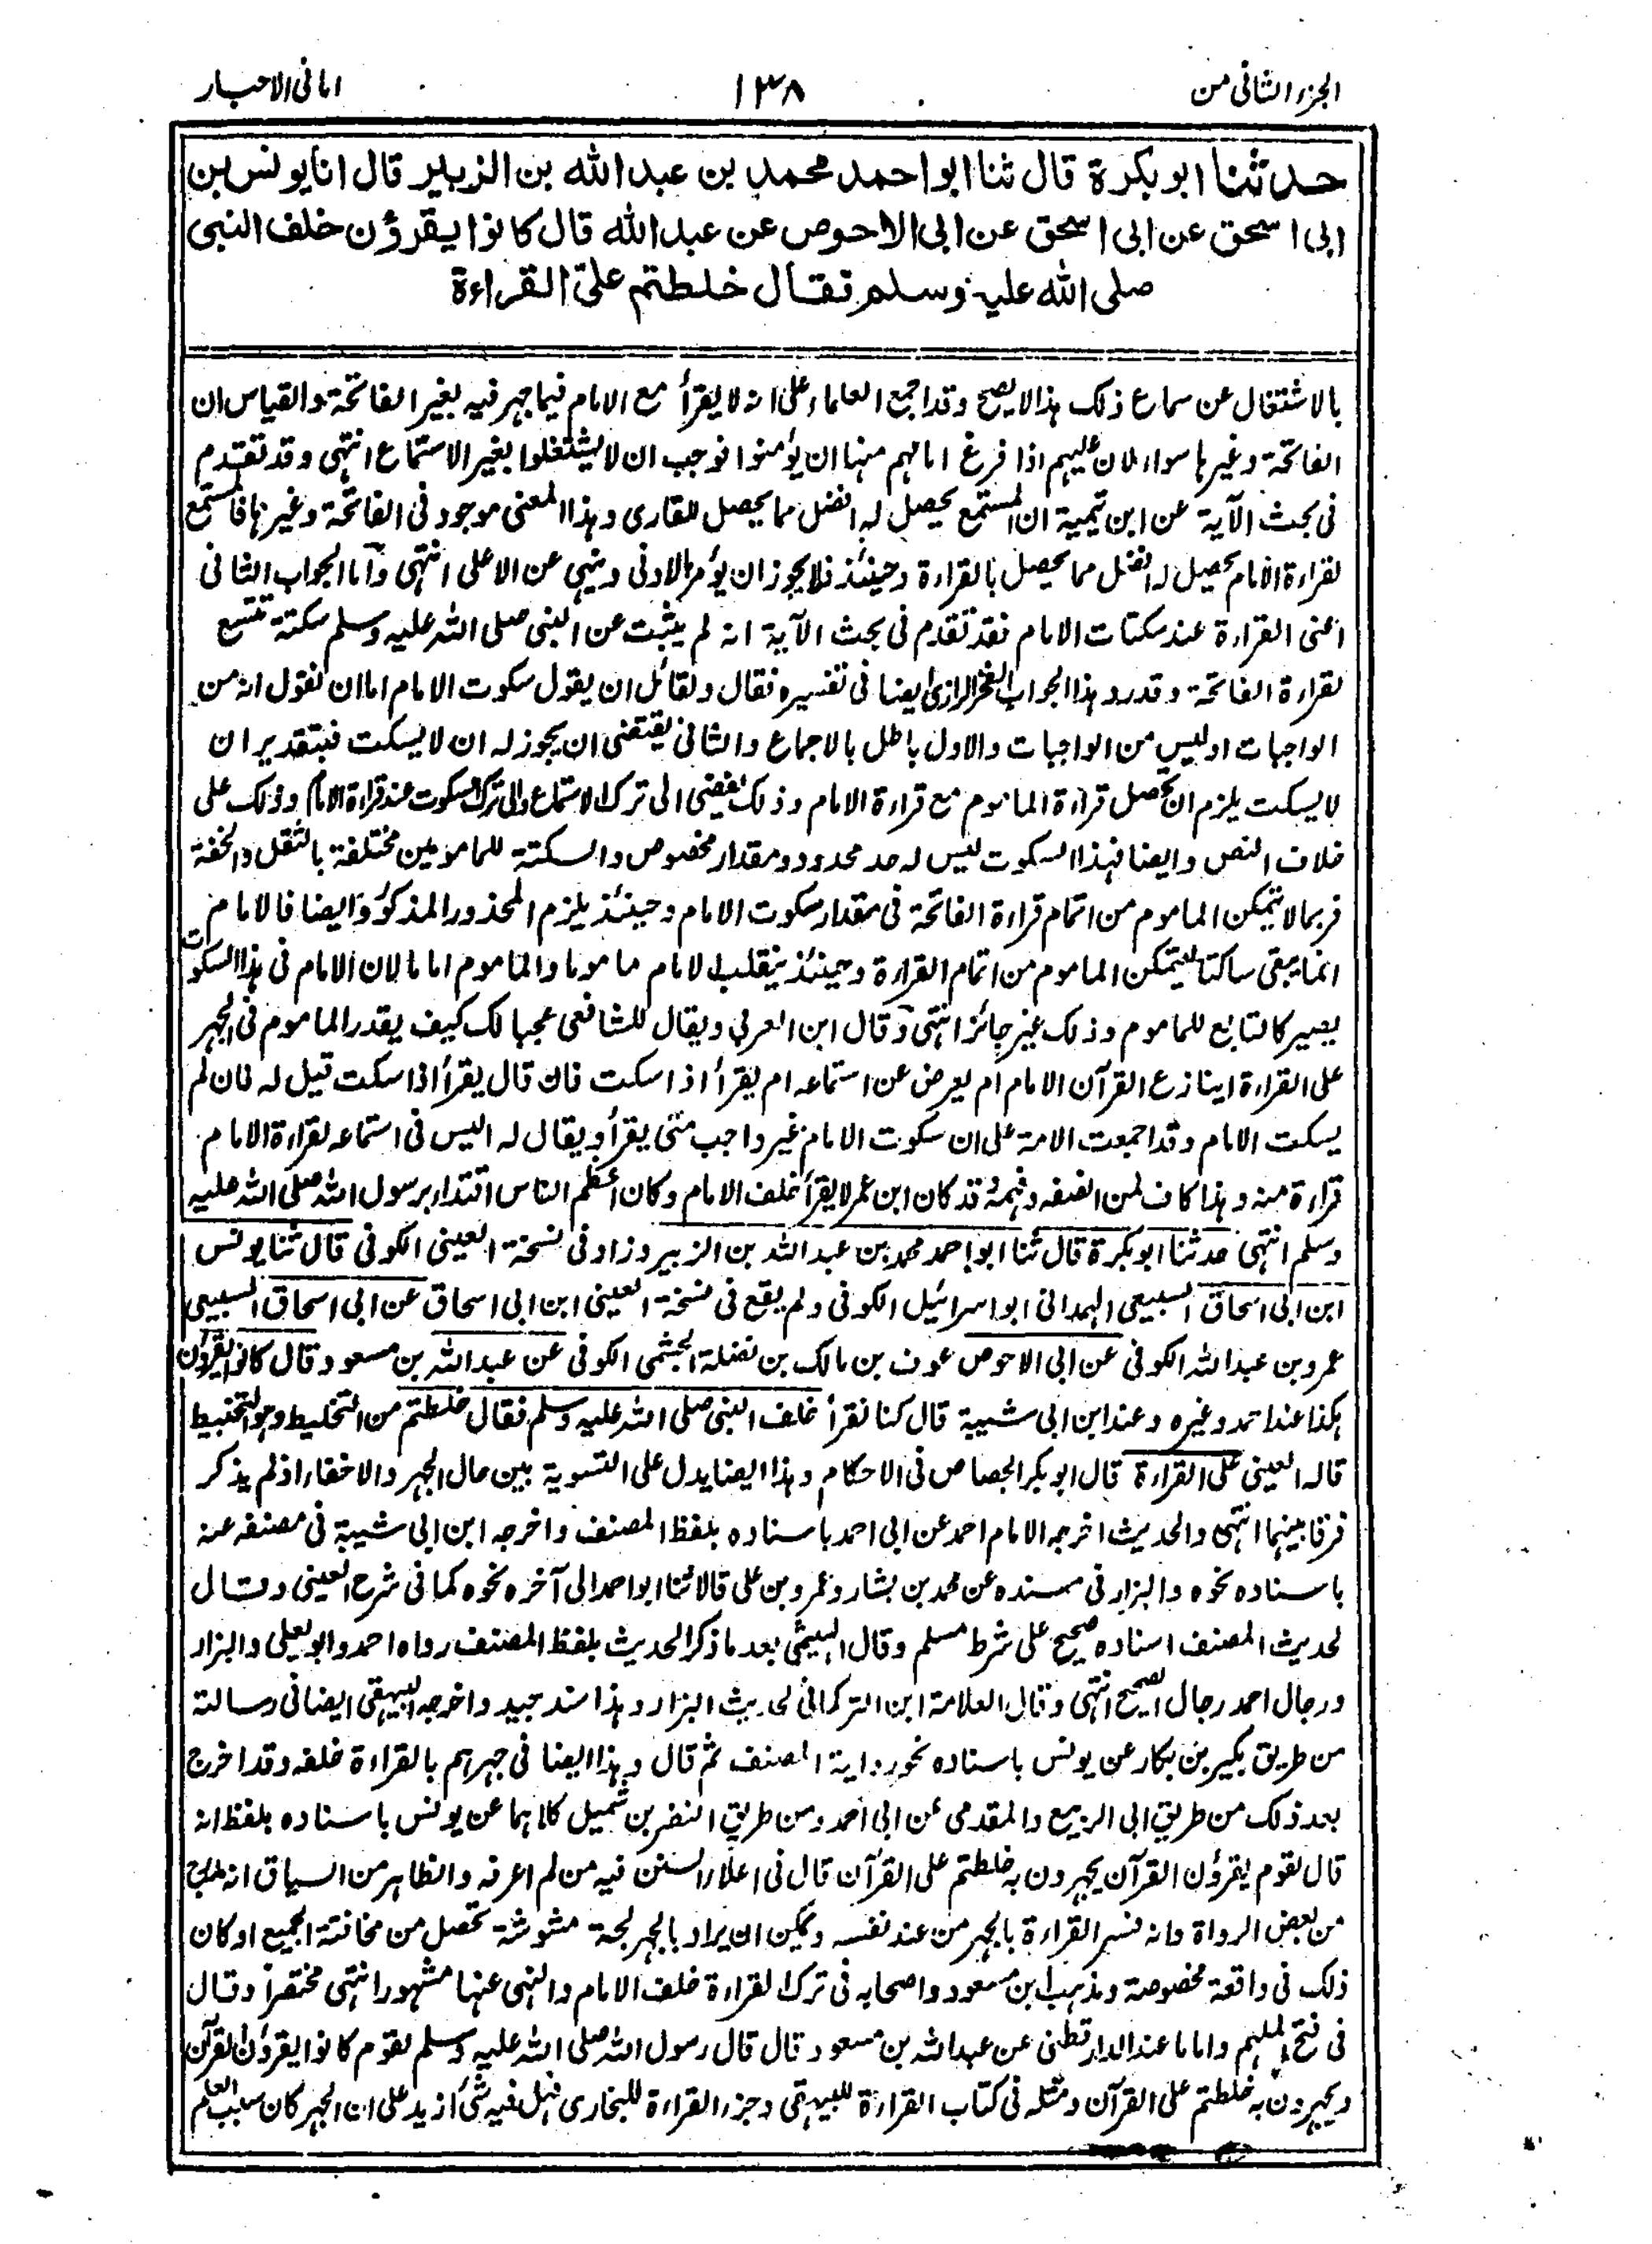 الجزء الثانى من
١٣٨
امانى الاحبار
حدثنا ابو بكرة قال ثنا ابو احمد محمد بن عبد الله بن الزبير قال انا يونس بن
ابى اسحق عن ابى اسحق عن ابى الاحوص عن عبد الله قال كانوا يقرؤن خلف النبى
صلى الله عليه وسلم فقال خلطتم علىّ القراءة
بالاشتغال عن سماع ذلك هذا لا يصح وقد اجمع العلماء على انه لا يقرأ مع الامام فيما جهر فيه بغير الفاتحة والقياس ان
الفاتحة وغيرها سواء لان عليهم اذا فرغ امامهم منها ان يؤمنوا فوجب ان لا يشتغلوا بغير الاستماع انتهى وقد تقدم
فى بحث الآية عن ابن تيمية ان المستمع يحصل له افضل مما يحصل للقارى وهذا المعنى موجود فى الفاتحة وغيرها فالمستمع
لقراءة الامام يحصل له افضل مما يحصل بالقراءة وحينئذ فلا يجوز ان يؤمر بالادنى وينهى عن الاعلى انتهى وأما الجواب الثانى
اعنى القراءة عند سكتات الامام فقد تقدم فى بحث الآية انه لم يثبت عن النبى صلى الله عليه وسلم سكتة تتسع
لقراءة الفاتحة وقد رد هذا الجواب الفخر الرازى ايضا فى تفسيره فقال ولقائل ان يقول سكوت الامام اما ان نقول انه من
الواجبات او ليس من الواجبات والاول باطل بالاجماع والثانى يقتضى ان يجوز له ان لا يسكت فبتقدير ان
لا يسكت يلزم ان تحصل قراءة الماموم مع قراءة الامام وذلك يفضى الى ترك الاستماع والى ترك السكوت عند قراءة الامام وذلك على
خلاف النص وايضا فهذا السكوت ليس له حد محدود ومقدار مخصوص والسكتة للمامومين مختلفة بالثقل والخفة
فربما لا يتمكن الماموم من اتمام قراءة الفاتحة فى مقدار سكوت الامام وحينئذ يلزم المحذور المذكور وايضا فالامام
انما يبقى ساكتا ليتمكن الماموم من اتمام القراءة وحينئذ ينقلب الامام ماموما والماموم اماما لان الامام فى هذا السكوت
يصير كالتابع للماموم وذلك غير جائز انتهى وقال ابن العربى ويقال للشافعى عجبا لك كيف يقدر الماموم فى الجهر
على القراءة اينازع القرآن الامام ام يعرض عن استماعه ام يقرأ اذا سكت فان قال يقرأ اذا سكت قيل له فان لم
يسكت الامام وقد اجمعت الامة على ان سكوت الامام غير واجب متى يقرأ ويقال له اليس فى استماعه لقراءة الامام
قراءة منه وهذا كاف لمن انصفه وفهمه وقد كان ابن عمر لا يقرأ خلف الامام وكان اعظم الناس اقتداء برسول الله صلى الله عليه
وسلم انتهى حدثنا ابو بكرة قال ثنا ابو احمد محمد بن عبد الله بن الزبير وزاد فى نسخة العينى الكوفى قال ثنا يونس
ابن ابى اسحاق السبيعى الهمدانى ابو اسرائيل الكوفى ولم يقع فى نسخة العينى ابن ابى اسحاق عن ابى اسحاق السبيعى
عمرو بن عبد الله الكوفى عن ابى الاحوص عوف بن مالك بن نضلة الجشمى الكوفى عن عبد الله بن مسعود قال كانوا يقرؤن
هكذا عند احمد وغيره وعند ابن ابى شيبة قال كنا نقرأ خلف النبى صلى الله عليه وسلم فقال خلطتم من التخليط وهو التخبيط
قاله العينى على القراءة قال ابو بكر الجصاص فى الاحكام وهذا ايضا يدل على التسوية بين حال الجهر والاخفاء اذ لم يذكر
فرقا بينهما انتهى والحديث اخرجه الامام احمد عن ابى احمد باسناده بلفظ المصنف واخرجه ابن ابى شيبة فى مصنفه عنه
باسناده نحوه والبزار فى مسنده عن محمد بن بشار وعمرو بن على قالا ثنا ابو احمد الى آخره نحوه كما فى شرح العينى وقال
لحديث المصنف اسناده صحيح على شرط مسلم وقال الهيثمى بعد ما ذكر الحديث بلفظ المصنف رواه احمد وابو يعلى والبزار
ورجال احمد رجال الصحيح انتهى وقال العلامة ابن التركمانى لحديث البزار وهذا سند جيد واخرجه البيهقى ايضا فى رسالته
من طريق بكير بن بكار عن يونس باسناده نحو رواية المصنف ثم قال وهذا ايضا فى جهرهم بالقراءة خلفه وقد اخرج
بعد ذلك من طريق ابى الربيع والمقدمى عن ابى احمد ومن طريق النضر بن شميل كلاهما عن يونس باسناده بلفظ انه
قال لقوم يقرؤن القرآن يجهرون به خلطتم على القرآن قال فى اعلاء السنن فيه من لم اعرفه والظاهر من السياق انه مدرج
من بعض الرواة وانه فسر القراءة بالجهر من عند نفسه ويمكن ان يراد بالجهر لجة مشوشة تحصل من مخافتة الجميع او كان
ذلك فى واقعة مخصوصة ومذهب ابن مسعود واصحابه فى ترك القراءة خلف الامام والنهى عنها مشهور انتهى مختصرا وقال
فى فتح الملهم واما ما عند الدارقطنى عن عبد الله بن مسعود قال قال رسول الله صلى الله عليه وسلم لقوم كانوا يقرؤن القرآن
ويجهرون به خلطتم على القرآن ومثله فى كتاب القراءة للبيهقى وجزء القراءة للبخارى فهل فيه شئ ازيد على ان الجهر كان سبب العلم